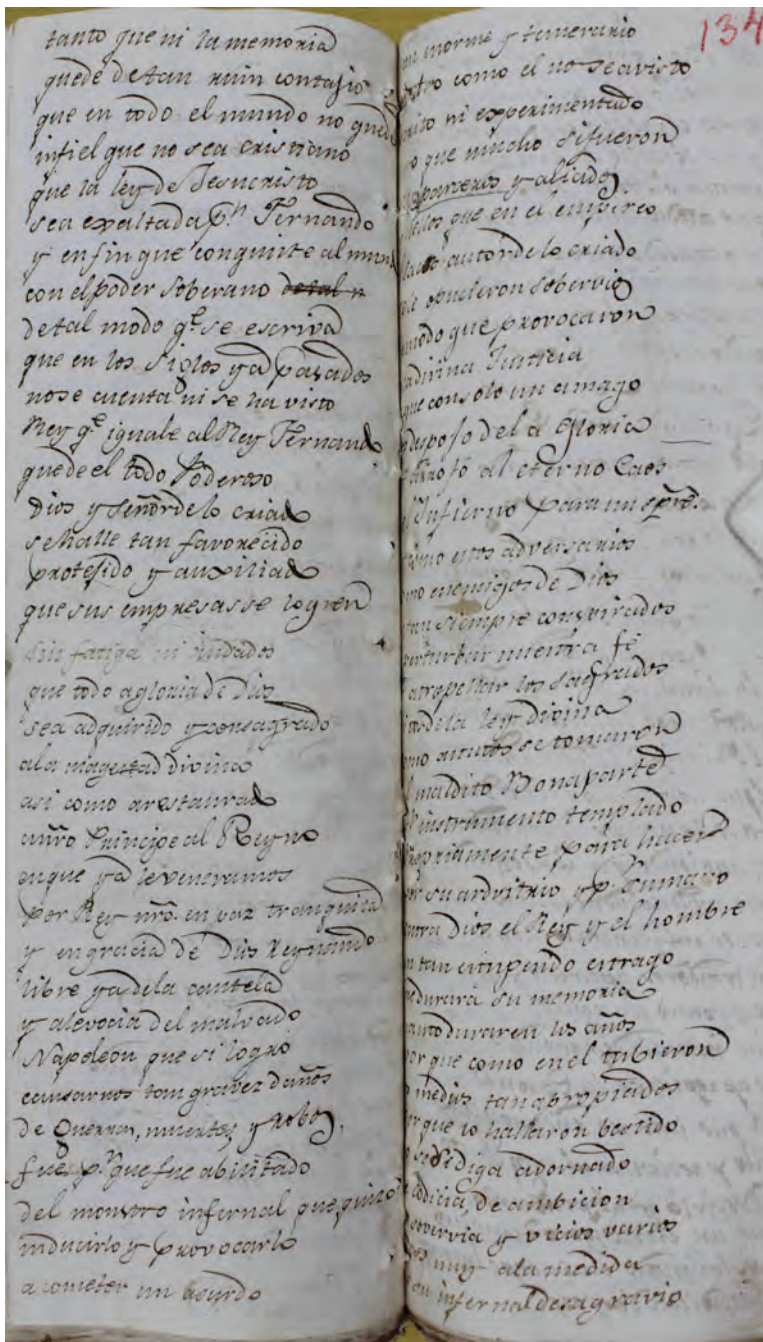 tanto que ni la memoria
quede de tan ruin contajio
que en todo el mundo no quede
infiel que no sea cristiano
que la ley de Jesucristo
sea exaltada pr. Fernando
y en fin que conquiste al mun
con el poder soberano detal n
de tal modo qe. se escriva
que en los siglos ya pasados
nose cuenta ni se ha visto
Rey qe. iguale al Rey Fernando
quede el todo Poderoso
Dios y Señor de lo criado
se halle tan favorecido
protejido y auxiliado
que sus empresas se logren
sin fatiga ni cuidados
que todo a gloria de Dios
sea adquirido y consagrado
ala magestad divina
asi como a restaurado
a nro Principe al Reyno
en que ya le veneramos
por Rey nro. en paz tranquila
y en gracia de Dios Reynando
libre ya de la cautela
y alevocia del malvado
Napoleon que si logró
causarnos tan graves daños
de Guerras, muertes, y robos,
fue pr. que fue
del monstro infernal que quizo
inducirlo y provocarlo
a cometer un asurdo
inorme y temerario
otro como el no se a visto
ni experimentado
que mucho si fueron
parceros y aliados
que en el empireo
autor de lo criado
opucieron sobervios
modo que provocaron
a divina Justicia
que con solo un amago
desposo de la Gloria
al eterno Caos
Infierno para siempre.
como estos adversarios
como enemigos de Dios
tan siempre conspirados
perturbar nuestra fe
atropellar los sagrados
de la ley divina
como astutos se tomaron
maldito Bonaparte
instrumento templado
propriamente para hacer
por su arvitrio y pr. su mano
contra Dios el Rey y el hombre
tan estupendo estrago
durará su memoria
duraren los años
por que como en el tubieron
medios tan apropiados
por que lo hallaron bestido
se diga adornado
codicia, de ambicion
sovervia y vicios varios
muy a la medida
su infernal desagravio
134